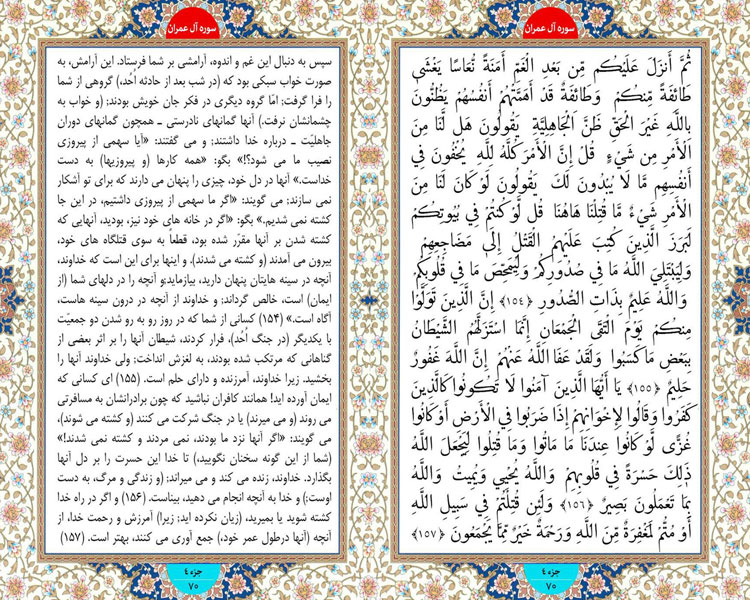 سوره آل عمران
ثُمَّ أَنزَلَ عَلَيْكُم مِّن بَعْدِ الْغَمِّ أَمَنَةً نُّعَاسًا يَغْشَىٰ
طَائِفَةً مِّنكُمْ وَطَائِفَةٌ قَدْ أَهَمَّتْهُمْ أَنفُسُهُمْ يَظُنُّونَ
بِاللَّهِ غَيْرَ الْحَقِّ ظَنَّ الْجَاهِلِيَّةِ يَقُولُونَ هَل لَّنَا مِنَ
الْأَمْرِ مِن شَيْءٍ قُلْ إِنَّ الْأَمْرَ كُلَّهُ لِلَّهِ يُخْفُونَ فِي
أَنفُسِهِم مَّا لَا يُبْدُونَ لَكَ يَقُولُونَ لَوْ كَانَ لَنَا مِنَ
الْأَمْرِ شَيْءٌ مَّا قُتِلْنَا هَاهُنَا قُل لَّوْ كُنتُمْ فِي بُيُوتِكُمْ
لَبَرَزَ الَّذِينَ كُتِبَ عَلَيْهِمُ الْقَتْلُ إِلَىٰ مَضَاجِعِهِمْ
وَلِيَبْتَلِيَ اللَّهُ مَا فِي صُدُورِكُمْ وَلِيُمَحِّصَ مَا فِي قُلُوبِكُمْ
وَاللَّهُ عَلِيمٌ بِذَاتِ الصُّدُورِ ﴿١٥٤﴾ إِنَّ الَّذِينَ تَوَلَّوْا
مِنكُمْ يَوْمَ الْتَقَى الْجَمْعَانِ إِنَّمَا اسْتَزَلَّهُمُ الشَّيْطَانُ
بِبَعْضِ مَا كَسَبُوا وَلَقَدْ عَفَا اللَّهُ عَنْهُمْ إِنَّ اللَّهَ غَفُورٌ
حَلِيمٌ ﴿١٥٥﴾ يَا أَيُّهَا الَّذِينَ آمَنُوا لَا تَكُونُوا كَالَّذِينَ
كَفَرُوا وَقَالُوا لِإِخْوَانِهِمْ إِذَا ضَرَبُوا فِي الْأَرْضِ أَوْ كَانُوا
غُزًّى لَّوْ كَانُوا عِندَنَا مَا مَاتُوا وَمَا قُتِلُوا لِيَجْعَلَ اللَّهُ
ذَٰلِكَ حَسْرَةً فِي قُلُوبِهِمْ وَاللَّهُ يُحْيِي وَيُمِيتُ وَاللَّهُ
بِمَا تَعْمَلُونَ بَصِيرٌ ﴿١٥٦﴾ وَلَئِن قُتِلْتُمْ فِي سَبِيلِ اللَّهِ
أَوْ مُتُّمْ لَمَغْفِرَةٌ مِّنَ اللَّهِ وَرَحْمَةٌ خَيْرٌ مِّمَّا يَجْمَعُونَ ﴿١٥٧﴾
جزء ٤
٧٠
سوره آل عمران
سپس به دنبال این غم و اندوه، آرامشی بر شما فرستاد. این آرامش، به
صورت خواب سبکی بود که (در شب بعد از حادثه اُحُد،) گروهی از شما
را فرا گرفت؛ امّا گروه دیگری در فکر جان خویش بودند؛ (و خواب به
چشمانشان نرفت.) آنها گمانهای نادرستی ـ همچون گمانهای دوران
جاهلیّت ـ درباره خدا داشتند؛ و می گفتند: «آیا سهمی از پیروزی
نصیب ما می شود؟!» بگو: «همه کارها (و پیروزیها) به دست
خداست.» آنها در دل خود، چیزی را پنهان می دارند که برای تو آشکار
نمی سازند؛ می گویند: «اگر ما سهمی از پیروزی داشتیم، در این جا
کشته نمی شدیم.» بگو: «اگر در خانه های خود نیز، بودید، آنهایی که
کشته شدن بر آنها مقرّر شده بود، قطعاً به سوی قتلگاه های خود،
بیرون می آمدند (و کشته می شدند). و اینها برای این است که خداوند،
آنچه در سینه هایتان پنهان دارید، بیازماید؛و آنچه را در دلهای شما (از
ایمان) است، خالص گرداند؛ و خداوند از آنچه در درون سینه هاست،
آگاه است.» (۱۵۴) کسانی از شما که در روز رو به رو شدن دو جمعیّت
با یکدیگر (در جنگ اُحُد)، فرار کردند، شیطان آنها را بر اثر بعضی از
گناهانی که مرتکب شده بودند، به لغزش انداخت؛ ولی خداوند آنها را
بخشید. زیرا خداوند، آمرزنده و دارای حلم است. (۱۵۵) ای کسانی که
ایمان آورده اید! همانند کافران نباشید که چون برادرانشان به مسافرتی
می روند (و می میرند) یا در جنگ شرکت می کنند (و کشته می شوند)،
می گویند: «اگر آنها نزد ما بودند، نمی مردند و کشته نمی شدند!»
(شما از این گونه سخنان نگویید،) تا خدا این حسرت را بر دل آنها
بگذارد. خداوند، زنده می کند و می میراند؛ (و زندگی و مرگ، به دست
اوست؛) و خدا به آنچه انجام می دهید، بیناست. (۱۵۶) و اگر در راه خدا
کشته شوید یا بمیرید، (زیان نکرده اید؛ زیرا) آمرزش و رحمت خدا، از
آنچه (آنها درطول عمر خود،) جمع آوری می کنند، بهتر است. (۱۵۷)
جزء ٤
٧٠